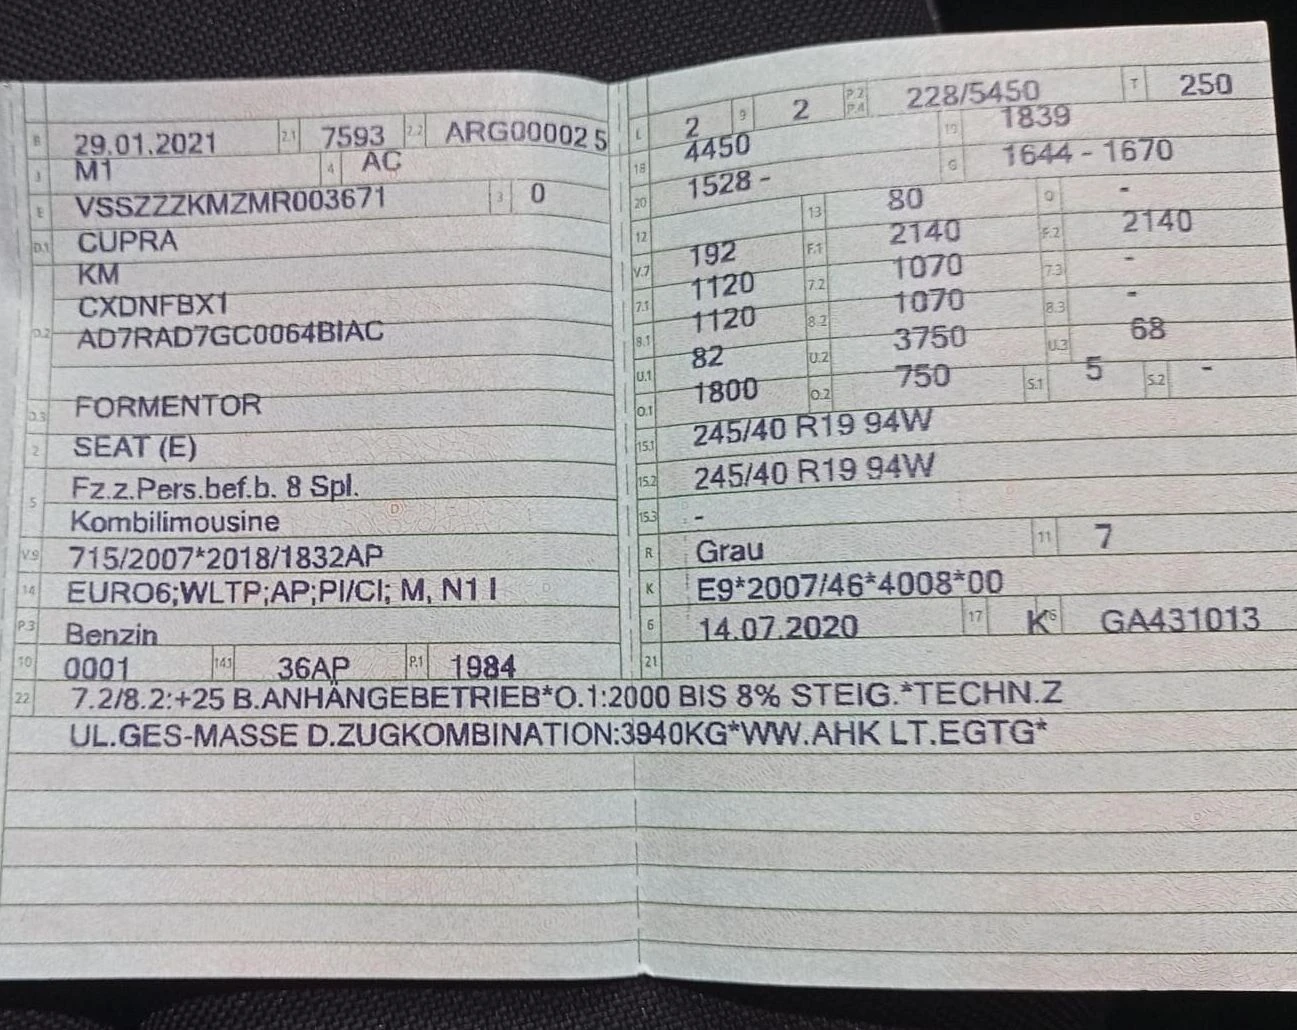 B 29.01.2021 2.1 7593 2.2 ARG00002 5
J M1 4 AC
E VSSZZZKMZMR003671 3 0
D.1 CUPRA
KM
CXDNFBX1
D.2 AD7RAD7GC0064BIAC
D.3 FORMENTOR
2 SEAT (E)
Fz.z.Pers.bef.b. 8 Spl.
5 Kombilimousine
V.9 715/2007*2018/1832AP
14 EURO6;WLTP;AP;PI/CI; M, N1 I
P.3 Benzin
10 0001 14.1 36AP P.1 1984
L 2 9 2 P.2 P.4 228/5450 T 250
18 4450 19 1839
20 1528 - G 1644 - 1670
12 13 80 Q -
V.7 192 F.1 2140 F.2 2140
7.1 1120 7.2 1070 7.3 -
8.1 1120 8.2 1070 8.3 -
U.1 82 U.2 3750 U.3 68
O.1 1800 O.2 750 S.1 5 S.2 -
15.1 245/40 R19 94W
15.2 245/40 R19 94W
15.3 -
R Grau 11 7
K E9*2007/46*4008*00
6 14.07.2020 17 K 16 GA431013
21
22 7.2/8.2:+25 B.ANHÄNGEBETRIEB*O.1:2000 BIS 8% STEIG.*TECHN.Z
UL.GES-MASSE D.ZUGKOMBINATION:3940KG*WW.AHK LT.EGTG*